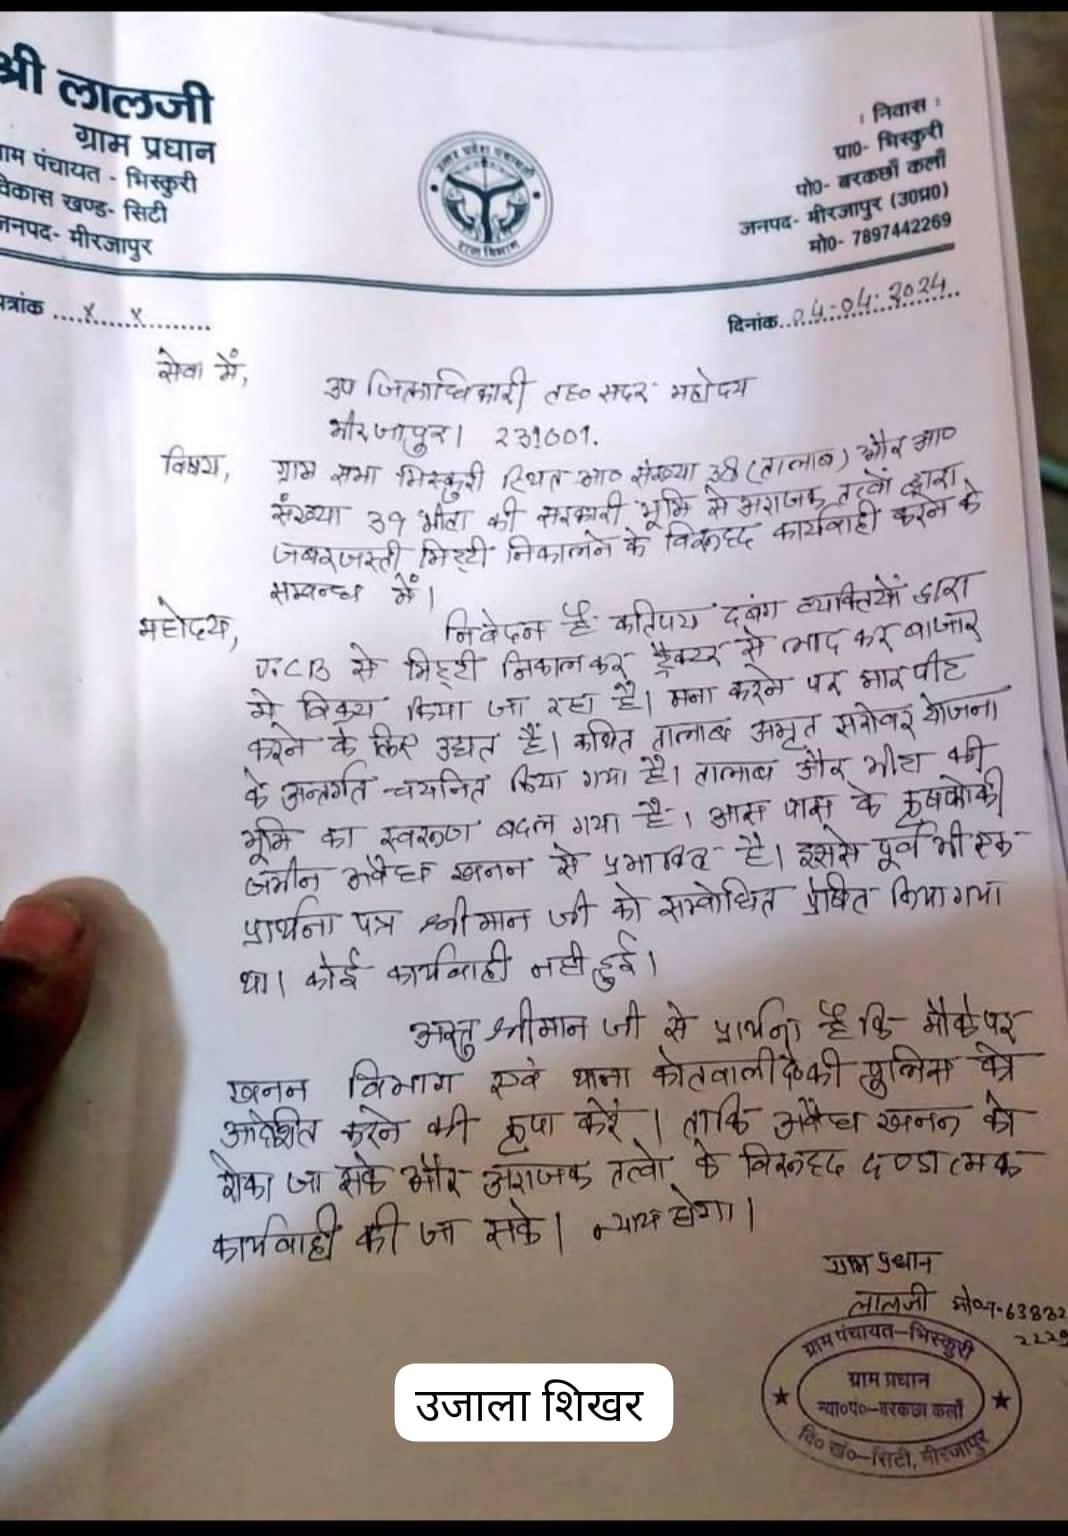 श्री लालजी
ग्राम प्रधान
ग्राम पंचायत - भिस्कुरी
विकास खण्ड- सिटी
जनपद- मीरजापुर
: निवास :
ग्रा0- भिस्कुरी
पो0- बरकछाँ कलाँ
जनपद- मीरजापुर (उ0प्र0)
मो0- 7897442269
पत्रांक ....x....x.........
दिनांक..04-04-2024..
सेवा में,
उप जिलाधिकारी तह० सदर महोदय
मीरजापुर। 231001.
विषय, ग्राम सभा भिस्कुरी स्थित आ० संख्या 38 (तालाब) और आ०
संख्या 39 भीटा की सरकारी भूमि से अराजक तत्वों द्वारा
जबरजस्ती मिट्टी निकालने के विरूद्ध कार्यवाही करने के
सम्बन्ध में।
महोदय, निवेदन है कतिपय दबंग व्यक्तियों द्वारा
J.C.B से मिट्टी निकाल कर ट्रैक्टर से लाद कर बाजार
मे विक्रय किया जा रहा है। मना करने पर मार पीट
करने के लिए उद्यत हैं। कथित तालाब अमृत सरोवर योजना
के अन्तर्गत चयनित किया गया है। तालाब और भीटा की
भूमि का स्वरूप बदल गया है। आस पास के कृषको की
जमीन अवैध खनन से प्रभावित है। इससे पूर्व भी एक
प्रार्थना पत्र श्रीमान जी को सम्बोधित प्रेषित किया गया
था। कोई कार्यवाही नही हुई।
अस्तु श्रीमान जी से प्रार्थना है कि मौके पर
खनन विभाग एवं थाना कोतवाली दे० की पुलिस को
आदेशित करने की कृपा करें। ताकि अवैध खनन को
रोका जा सके और अराजक तत्वो के विरूद्ध दण्डात्मक
कार्यवाही की जा सके। न्याय होगा।
ग्राम प्रधान
लालजी मो०न-63832
2229
ग्राम पंचायत-भिस्कुरी
ग्राम प्रधान
न्या०पं०-बरकछा कलाँ
वि० खं०-सिटी, मीरजापुर
उजाला शिखर